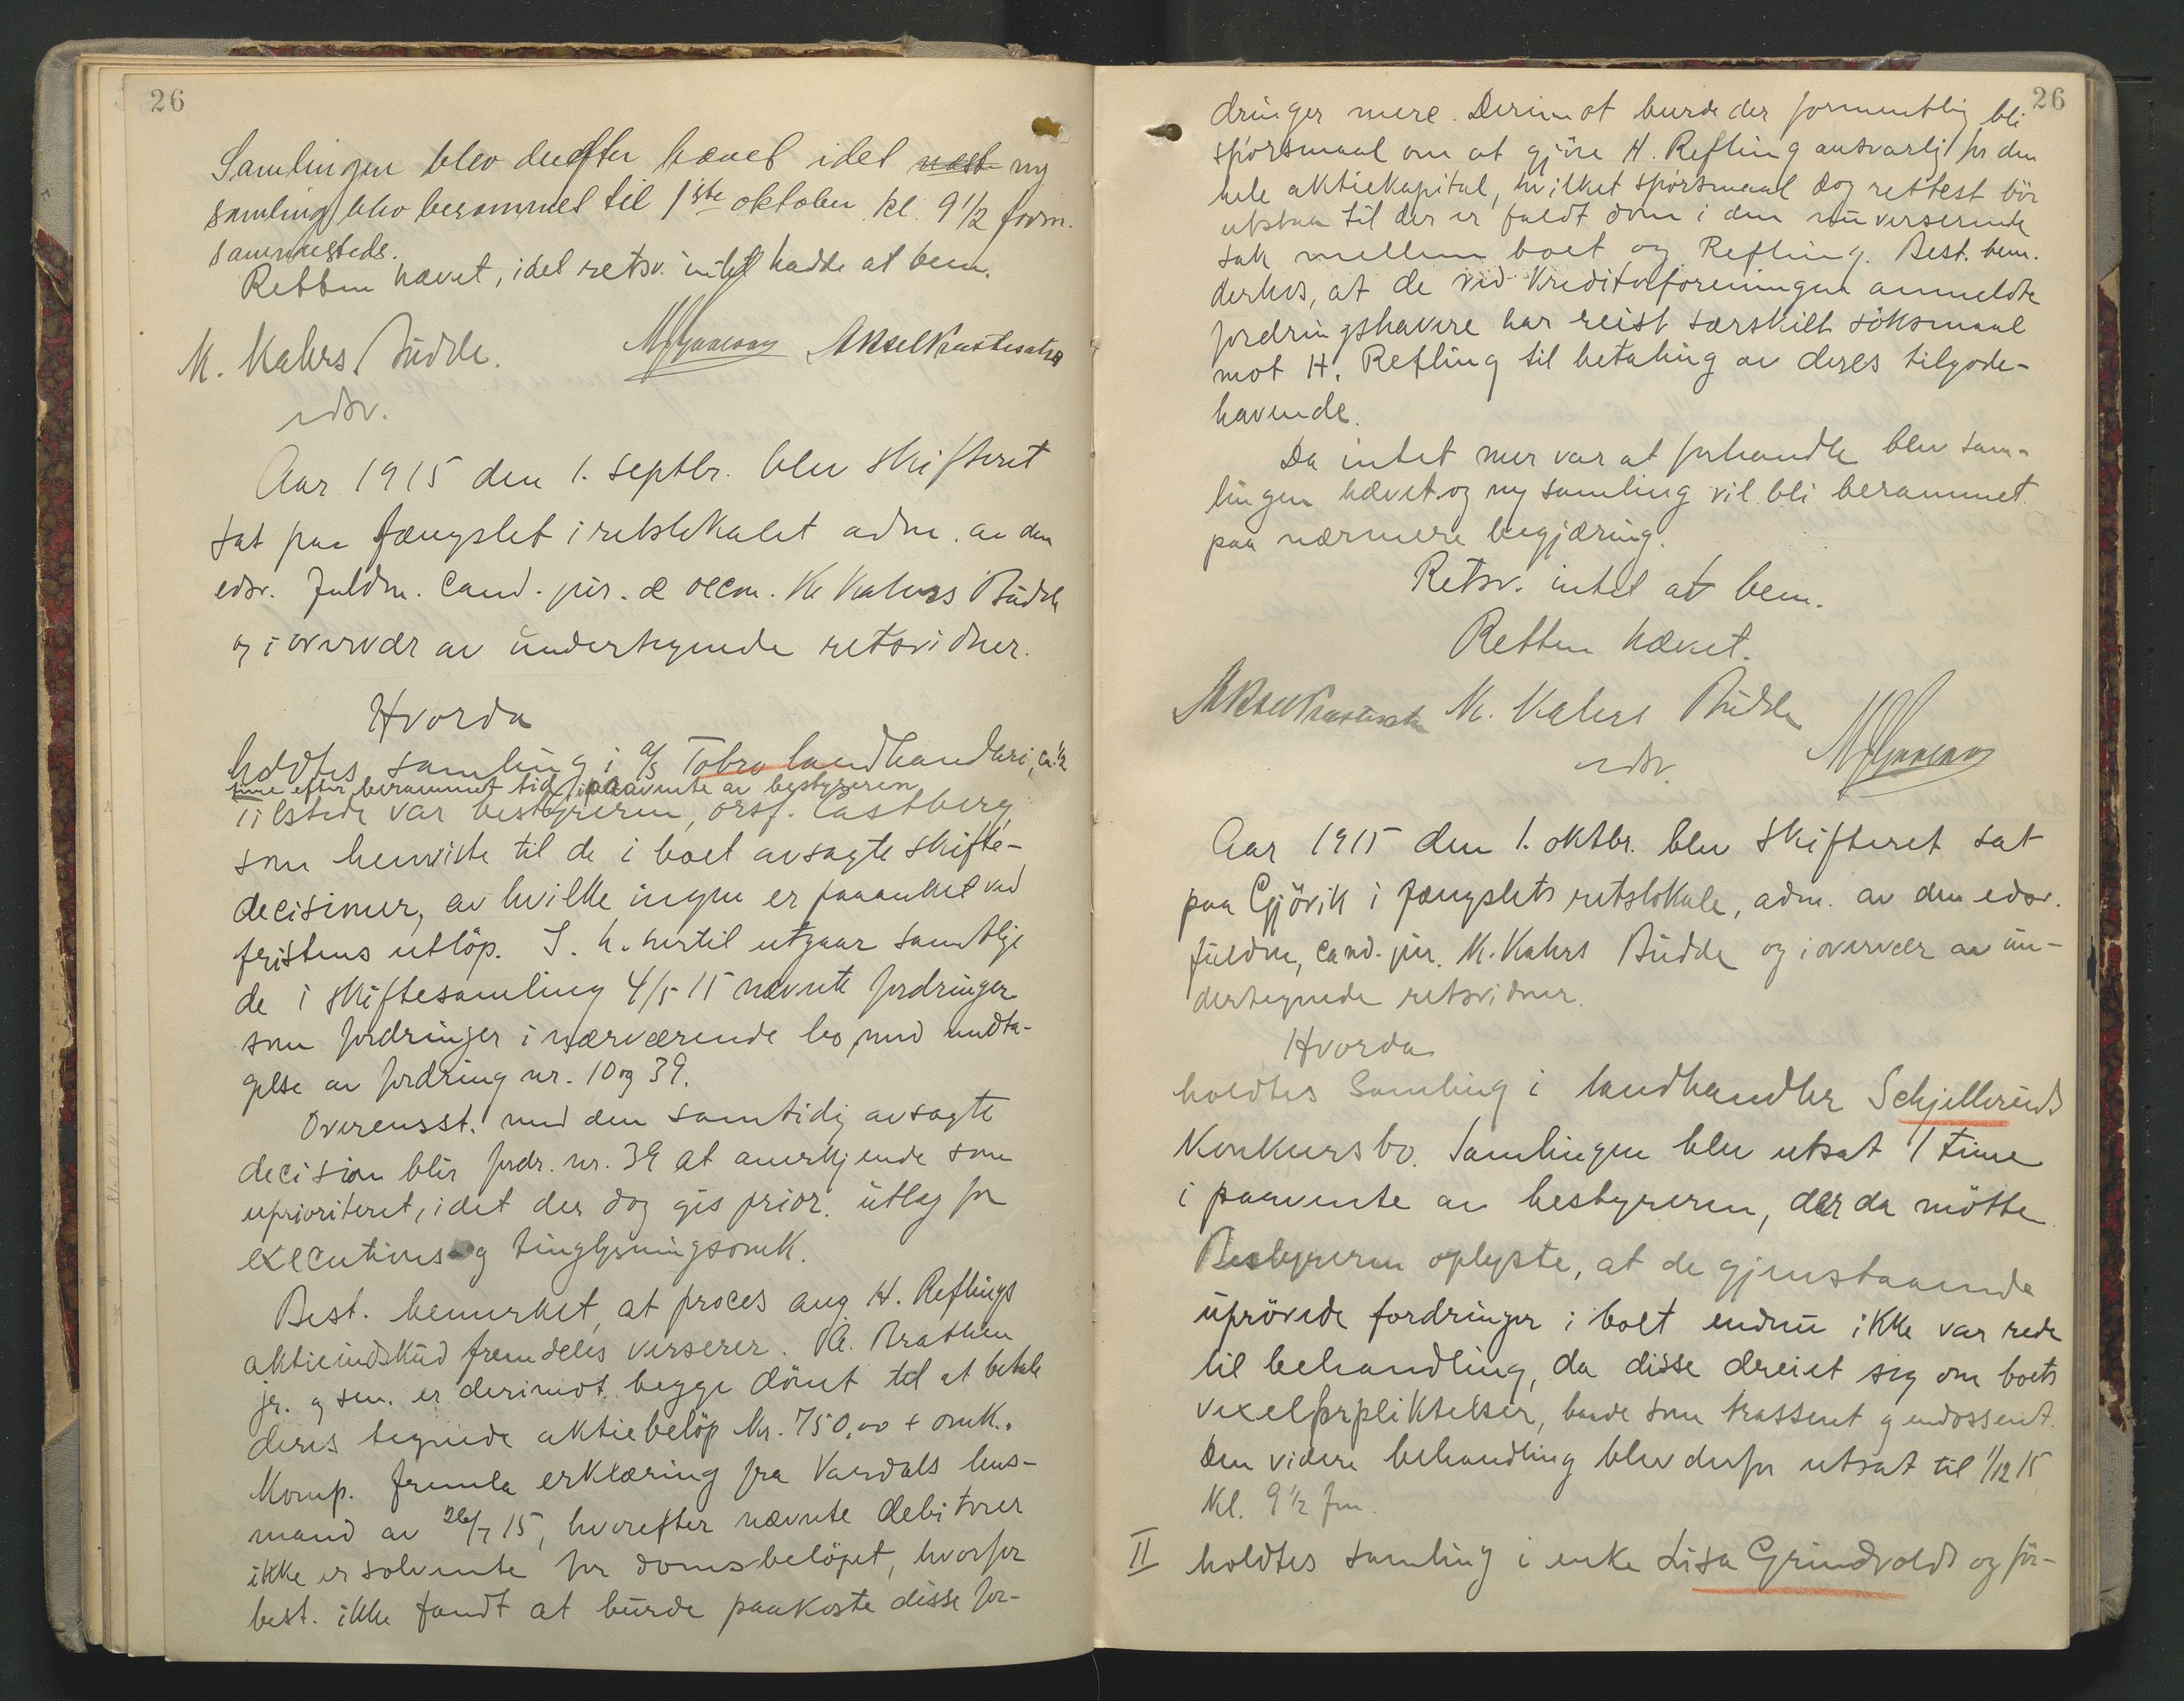 26
Samlingen blev derefter hævet idet næst ny
samling blev berammet til 1ste oktober kl. 9 1/2 form.
sammesteds.
Retten hævet, idet retsv. intet hadde at bem.
K. Kahrs Budde.
edsv.
Aar 1915 den 1. septbr. blev skifteret
sat paa fængslet i retslokalet adm. av den
edsv. fuldm. cand. jur. & oecon. K. Kahrs Budde
og i overvær av undertegnede retsvidner.
Hvorda
holdtes samling i A/S Tobro landhandleri, ca. 1/2
time efter berammet tid, i paavente av bestyreren
Tilstede var bestyreren, orsf. Castberg,
som henviste til de i boet avsagte skifte-
decisioner, av hvilke ingen er paaanket ved
fristens utløp. I h. hertil utgaar samtlige
de i skiftesamling 4/5 15 nævnte fordringer
som fordringer i nærværende bo, med undta-
gelse av fordring nr. 10 og 39.
Overensst. med den samtidig avsagte
decision blir fordr. nr. 39 at anerkjende som
uprioriteret, idet der dog gis prior. utlæg for
executions- og tinglysningsomk.
Best. bemerket, at proces ang. H. Reflings
aktieindskud fremdeles verserer. A. Brathen
jr. og sen. er derimot begge dömt til at betale
deres tegnede aktiebelöp kr. 750,00 + omk.
Komp. fremla erklæring fra Vardals lens-
mand av 26/7 15, hvorefter nævnte debitorer
ikke er solvente for domsbelöpet, hvorfor
best. ikke fandt at burde paakoste disse for-
26
dringer mere. Derimot burde der formentlig bli
spörsmaal om at gjöre H. Refling ansvarlig for den
hele aktiekapital, hvilket spörsmaal dog rettest bör
utstaa til der er faldt dom i den nu verserende
sak mellem boet og Refling. Best. bem.
derhos, at de ved Kreditorforeningen anmeldte
fordringshavere har reist særskilt söksmaal
mot H. Refling til betaling av deres tilgode-
havende.
Da intet mer var at forhandle blev sam-
lingen hævet og ny samling vil bli berammet
paa nærmere begjæring.
Retsv. intet at bem.
Retten hævet.
K. Kahrs Budde
edsv.
Aar 1915 den 1. oktbr. blev skifteret sat
paa Gjövik i fængslets retslokale, adm. av den edsv.
fuldm, cand. jur. K. Kahrs Budde og i overvær av un-
dertegnede retsvidner.
Hvorda
holdtes samling i landhandler Schjelleruds
konkursbo. Samlingen blev utsat 1 time
i paavente av bestyreren, der da mötte.
Bestyreren oplyste, at de gjenstaaende
uprövede fordringer i boet endnu ikke var rede
til behandling, da disse dreiet sig om boets
vexelforpliktelser, baade som trassent og endossent.
Den videre behandling blev derfor utsat til 1/12 15
kl. 9 1/2 fm.
II holdtes samling i enke Lisa Grindvolds og för-